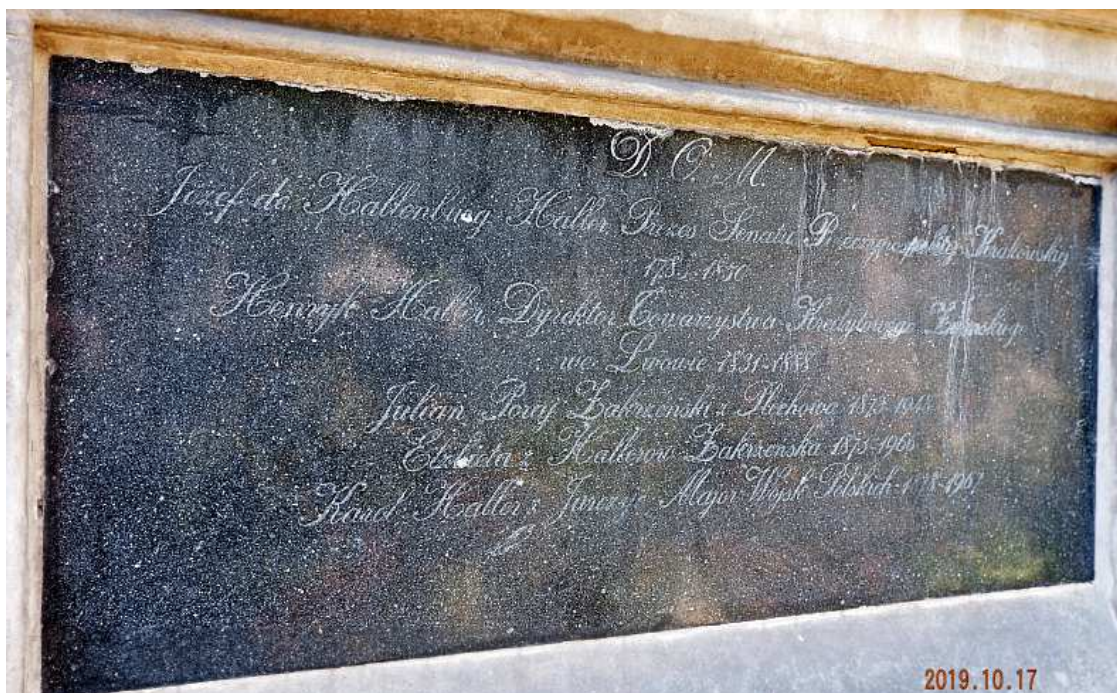 D. O. M.
Józef de Hallenburg Haller Prezes Senatu Rzeczypospolitej Krakowskiej
1783-1850
Henryk Haller Dyrektor Towarzystwa Kredytowego Ziemskiego
we Lwowie 1831-1888
Julian Porey Zakrzenski z Plechowa
Elżbieta z Hallerów Zakrzenska 1875-1960
Karol Haller z Jurczyc Major Wojsk Polskich
2019.10.17